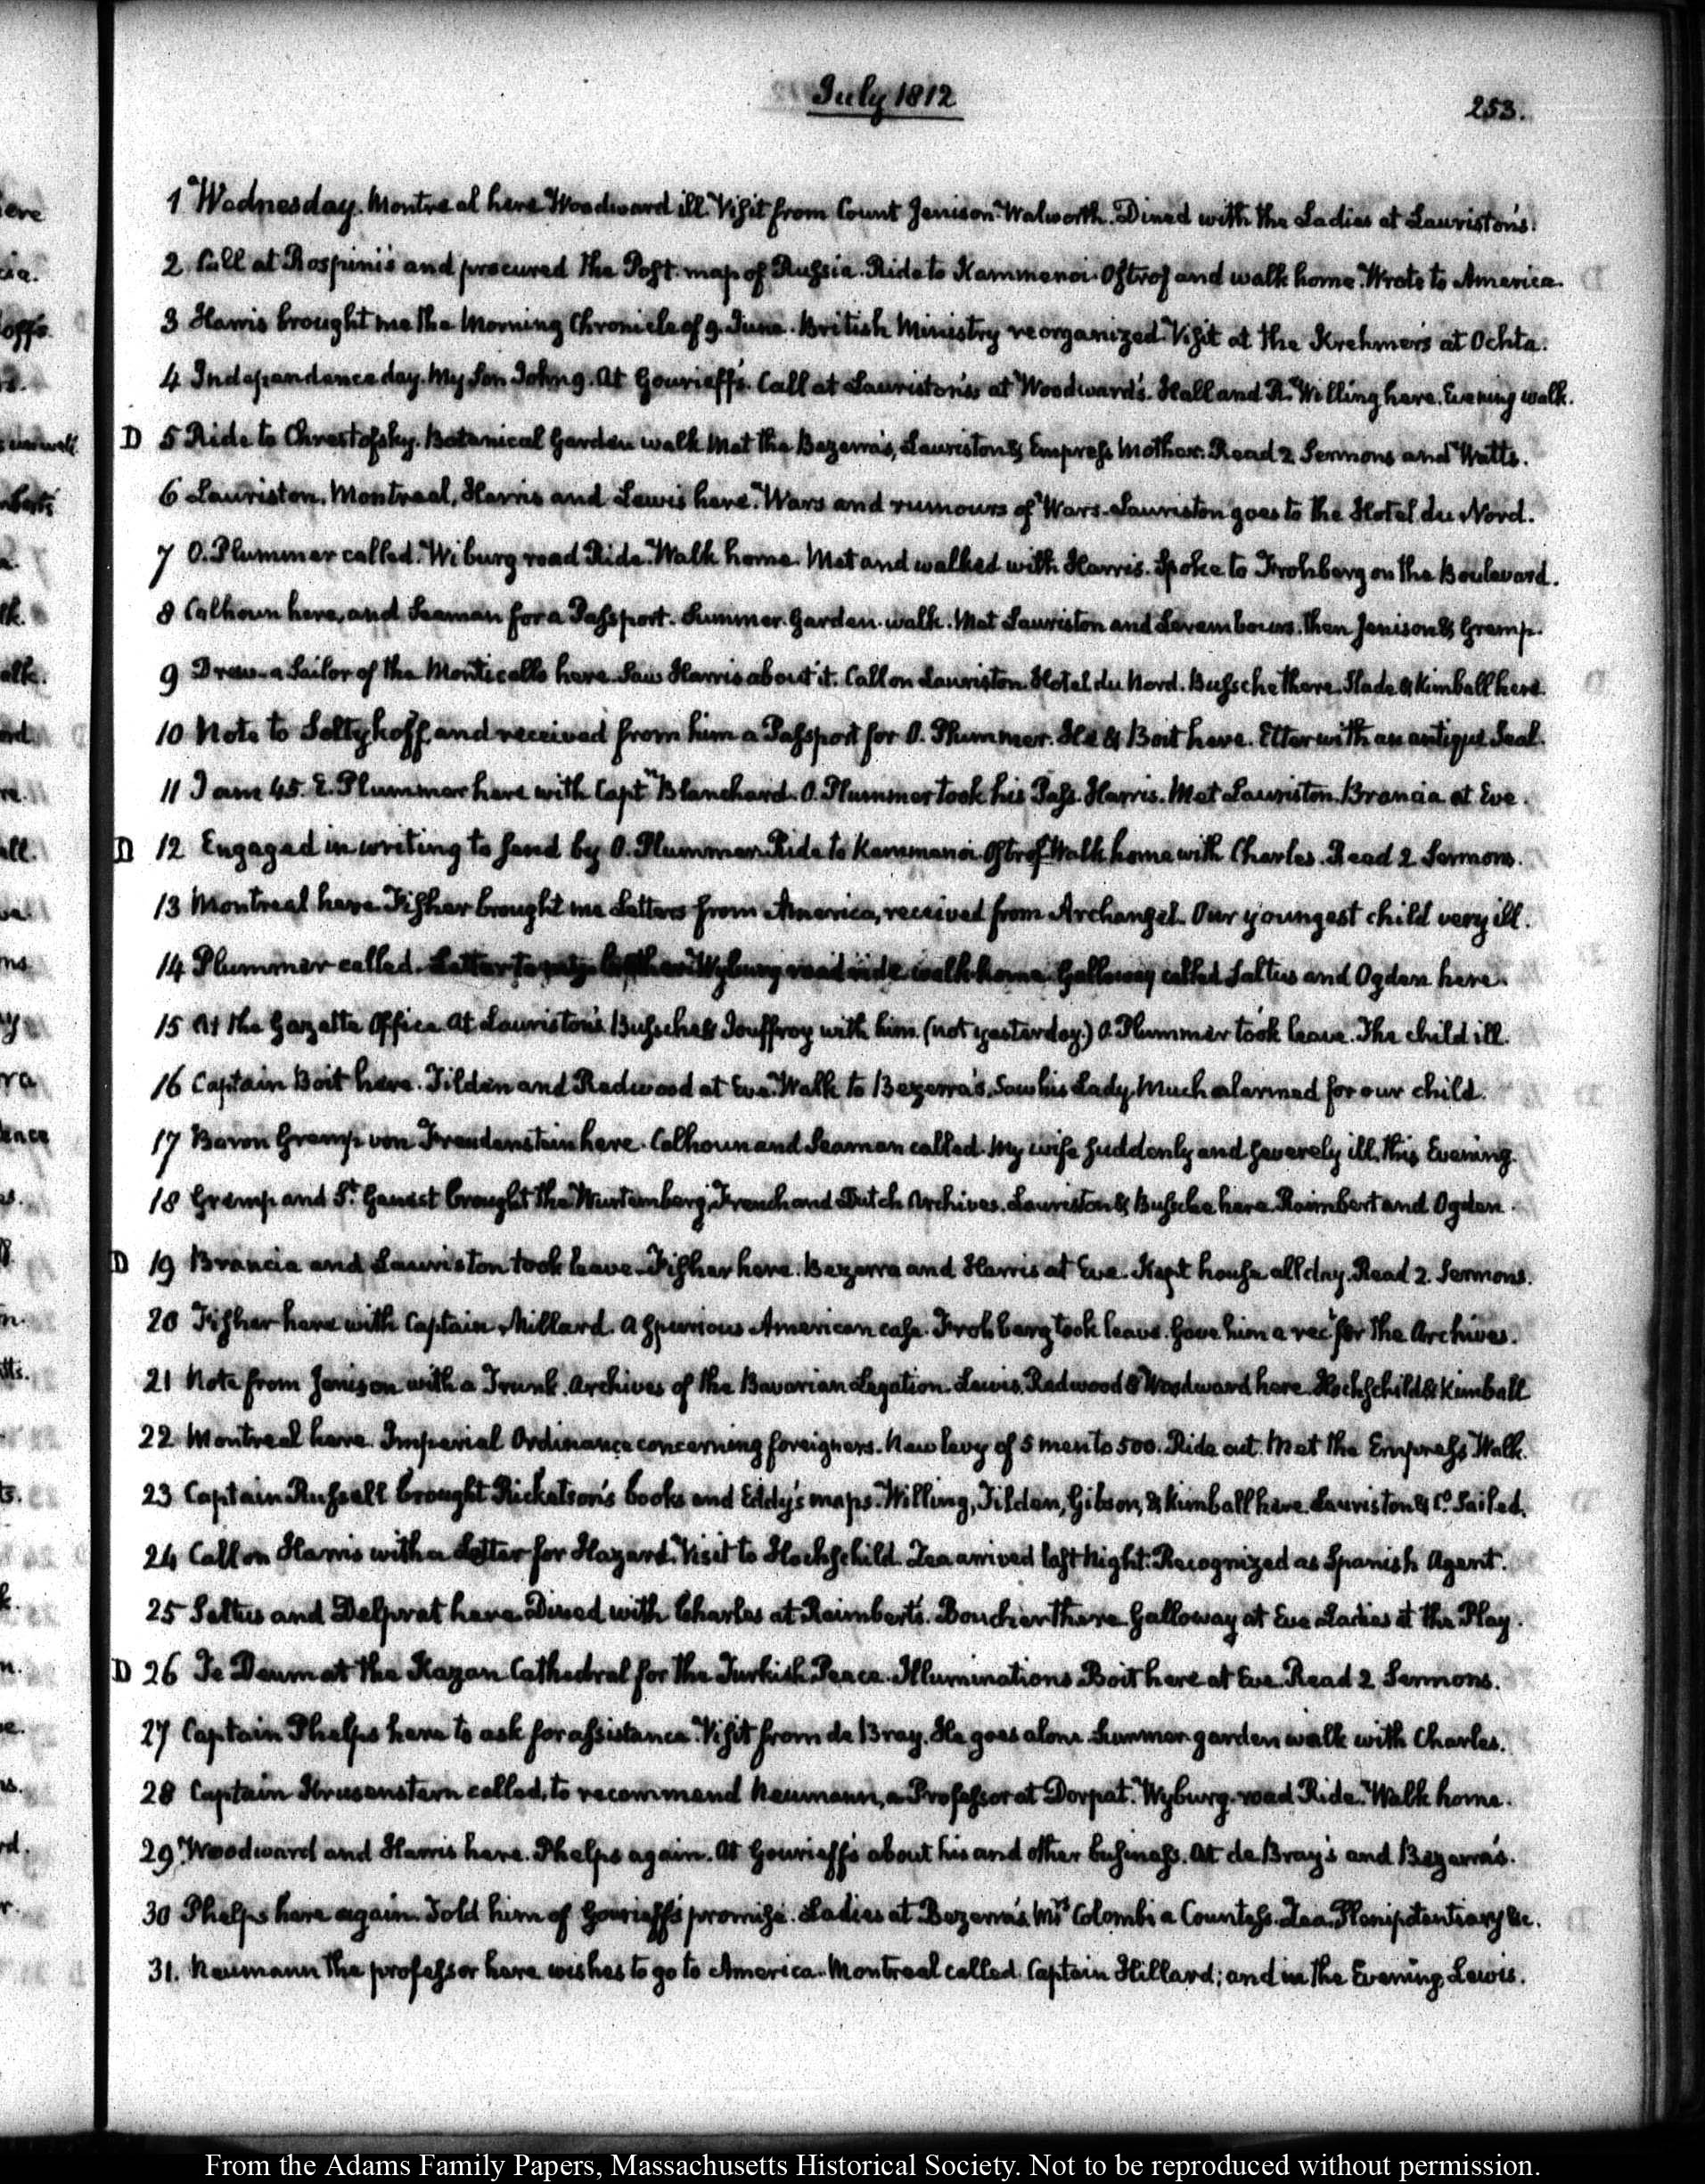 July 1812
253.
1 Wednesday. Montreal here Woodward ill. Visit from Count Jenison Walworth. Dined with the Ladies at Lauriston's.
2 Call at Rospini's and procured the Post-map of Russia. Ride to Kammenoi-Ostrof and walk home. Wrote to America.
3 Harris brought me the Morning Chronicle of 9. June. British Ministry reorganized. Visit at the Krehmer's at Ochta.
4 Independence day. My Son John 9. At Gourieff's. Call at Lauriston's at Woodward's. Hall and R. Willing here. Evening walk.
D 5 Ride to Chrestofsky. Botanical Garden walk Met the Bezerra's, Lauriston & Empress Mother. Read 2 Sermons and Watts.
6 Lauriston, Montreal, Harris and Lewis here. Wars and rumours of Wars. Lauriston goes to the Hotel du Nord.
7 O. Plummer called. Wiburg road Ride. Walk home. Met and walked with Harris. Spoke to Frohberg on the Boulevard.
8 Calhoun here, and Seaman for a Passport. Summer Garden walk. Met Lauriston and then Jenison & Gremp.
9 Drew a Sailor of the Monticello here. Saw Harris about it. Call on Lauriston. Hotel du Nord. Bussche there. Slade & Kimball here.
10 Note to Soltykoff, and received from him a Passport for O. Plummer. He & Boit here. Etter with an antique Seal.
11 I am 45. E. Plummer here with Capt.n Blanchard. O. Plummer took his Pass. Harris. Met Lauriston. Brancia at Eve.
D 12 Engaged in writing to send by O. Plummer. Ride to Kammenoi Ostrof. Walk home with Charles. Read 2 Sermons.
13 Montreal here. Fisher brought me Letters from America, received from Archangel. Our youngest child very ill.
14 Plummer called. Letter to my Wyburg road ride walk home. Galloway called Saltus and Ogden here.
15 At the Gazette Office. At Lauriston's. Bussche & Jouffroy with him. (not yesterday.) O. Plummer took leave. The child ill.
16 Captain Boit here. Tilden and Redwood at Eve. Walk to Bezerra's. Saw his Lady. Much alarmed for our child.
17 Baron Gremp von Freudenstein here. Calhoun and Seaman called. My wife suddenly and severely ill, this Evening.
18 Gremp and St. Genest brought the Wurtemberg, French and Dutch Archives. Lauriston & Bussche here. Raimbert and Ogden.
D 19 Brancia and Lauriston took leave. Fisher here. Bezerra and Harris at Eve. Kept house all day. Read 2. Sermons.
20 Fisher here with Captain Millard. A spurious American case. Frohberg took leave. Gave him a rect for the Archives.
21 Note from Jenison with a Trunk. Archives of the Bavarian Legation. Lewis, Redwood & Woodward here. Hochschild & Kimball
22 Montreal here. Imperial Ordinance concerning foreigners. New levy of 5 men to 500. Ride out. Met the Empress Walk.
23 Captain Russell brought Ricketson's books and Eddy's maps. Willing, Tilden, Gibson, & Kimball here. Lauriston & Co. Sailed.
24 Call on Harris with a Letter for Hazard. Visit to Hochschild. Zea arrived last Night. Recognized as Spanish Agent.
25 Saltus and Delprat here. Dined with Charles at Raimbert's. Boucher there. Galloway at Eve Ladies at the Play.
D 26 Te Deum at the Kazan Cathedral for the Turkish Peace. Illuminations Boit here at Eve. Read 2 Sermons.
27 Captain Phelps here to ask for assistance. Visit from de Bray. He goes alone. Summer garden walk with Charles.
28 Captain Krusenstern called, to recommend Neumann, a Professor at Dorpat. Wyburg road Ride. Walk home.
29 Woodward and Harris here. Phelps again. At Gourieff's about his and other business. At de Bray's and Bezerra's.
30 Phelps here again. Told him of Gourieff's promise. Ladies at Bezerra's. Mrs. Colombi a Countess. Zea. Plenipotentiary &c.
31. Neumann the professor here wishes to go to America. Montreal called. Captain Hillard; and in the Evening, Lewis.
From the Adams Family Papers, Massachusetts Historical Society. Not to be reproduced without permission.